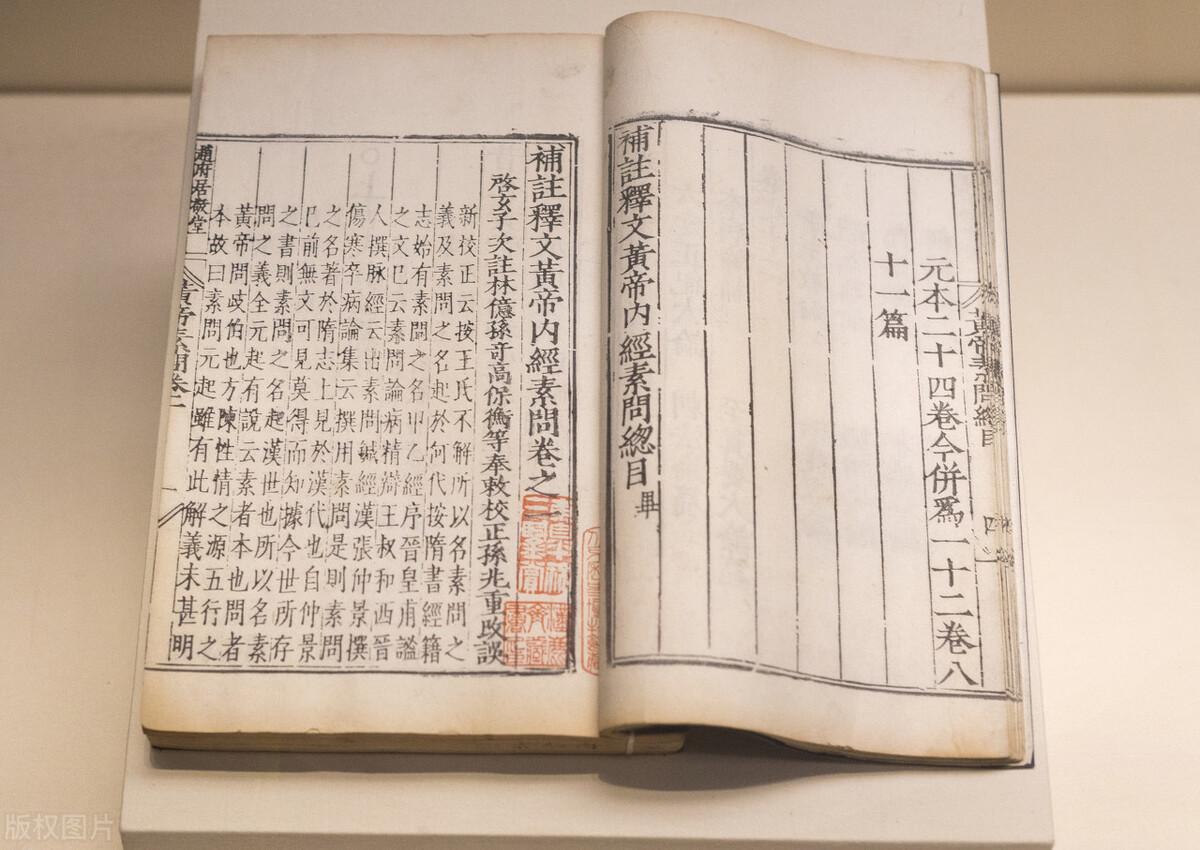 元本二十四卷今併爲一十二卷八
十一篇
補註釋文黃帝內經素問總目畢
補註釋文黃帝內經素問卷之一
啓玄子次註林億孫奇高保衡等奉敕校正孫兆重改誤
新校正云按王氏不解所以名素問之
義及素問之名起於何代按隋書經籍
志始有素問之名甲乙經序晉皇甫謐
之文已云素問論病精辯王叔和西晉
人撰脉經云出素問鍼經漢張仲景撰
傷寒卒病論集云撰用素問是則素問
之名著於隋志上見於漢代也自仲景
已前無文可見莫得而知據今世所存
之書則素問之名起漢世也所以名素
問之義全元起有說云素者本也問者
黃帝問歧伯也方陳性情之源五行之
本故曰素問元起雖有此解義未甚明
趙府居敬堂
黃帝素問卷一
黃帝素問總目
四
版权图片